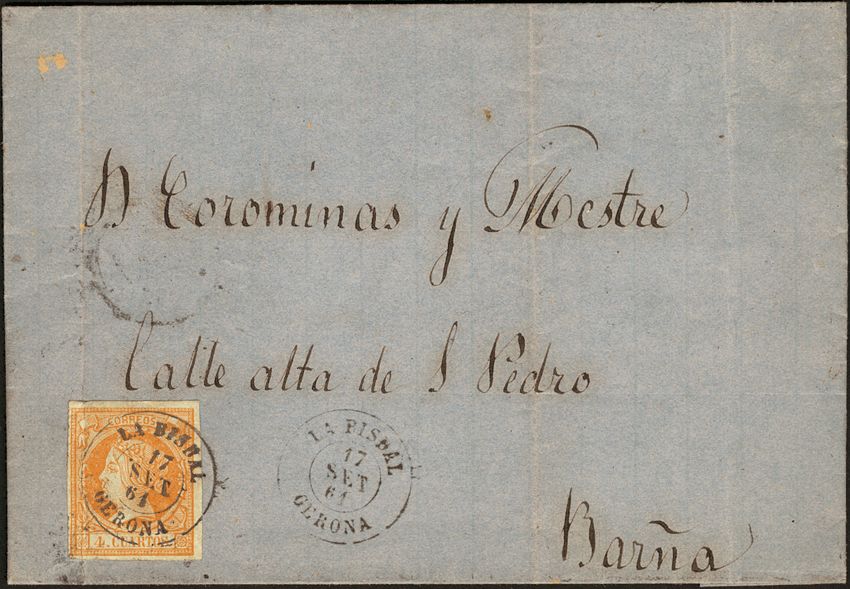 D Corominas y Mestre
Calle alta de S Pedro
Barña
CORREOS
LA BISBAL
17
SET
61
GERONA
4 CUARTOS
LA BISBAL
17
SET
61
GERONA